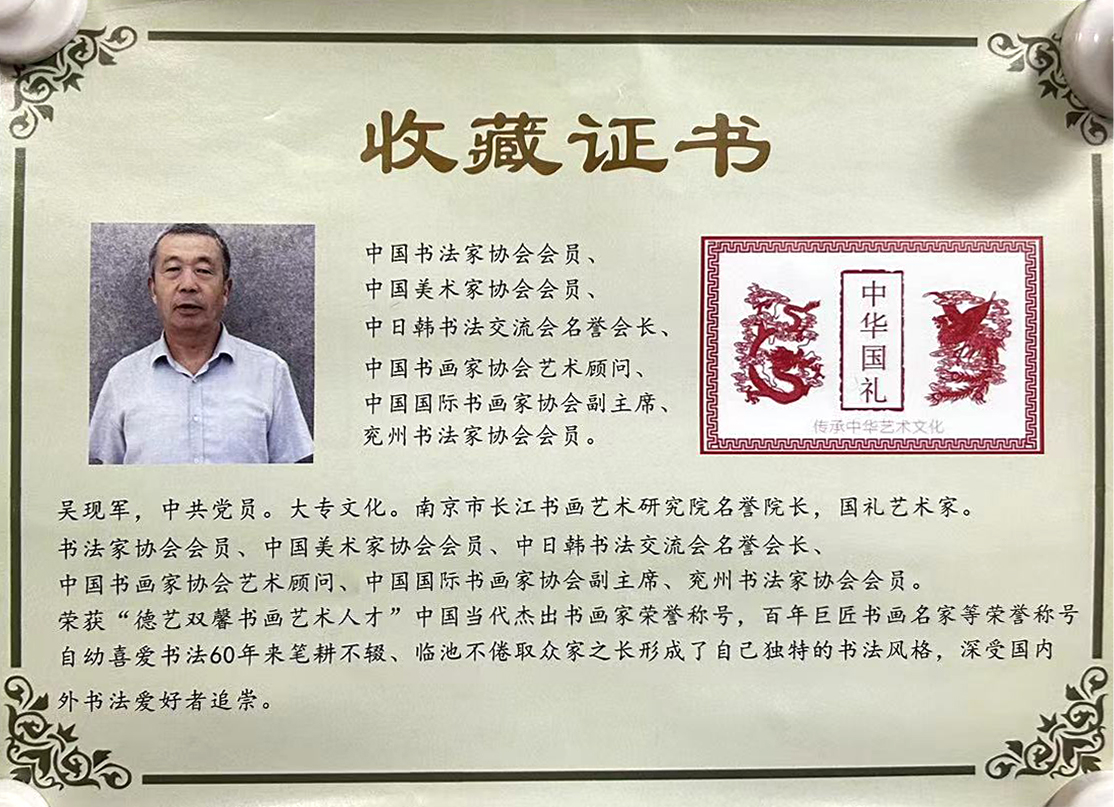 收藏证书
中国书法家协会会员、
中国美术家协会会员、
中日韩书法交流会名誉会长、
中国书画家协会艺术顾问、
中国国际书画家协会副主席、
兖州书法家协会会员。
中华国礼
传承中华艺术文化
吴现军，中共党员。大专文化。南京市长江书画艺术研究院名誉院长，国礼艺术家。
书法家协会会员、中国美术家协会会员、中日韩书法交流会名誉会长、
中国书画家协会艺术顾问、中国国际书画家协会副主席、兖州书法家协会会员。
荣获“德艺双馨书画艺术人才”中国当代杰出书画家荣誉称号，百年巨匠书画名家等荣誉称号
自幼喜爱书法60年来笔耕不辍、临池不倦取众家之长形成了自己独特的书法风格，深受国内
外书法爱好者追崇。